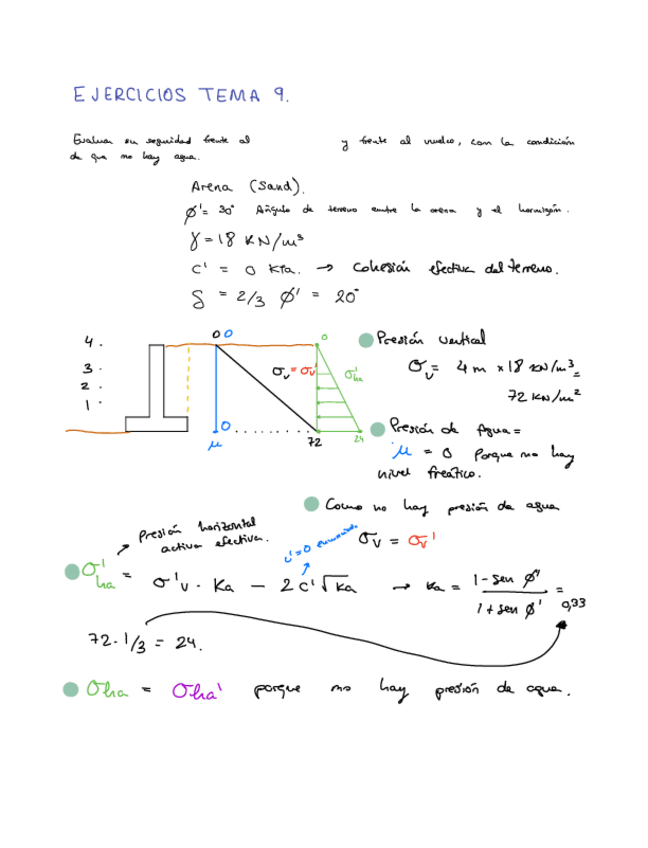 EJERCICIOS TEMA 9.
Evaluar su seguridad frente al y frente al vuelco, con la condición
de que no hay agua.
Arena (Sand).
ϕ'= 30° Ángulo de terreno entre la arena y el hormigón.
γ = 18 KN/m³
c' = 0 KPa. → Cohesión efectiva del terreno.
δ = 2/3 ϕ' = 20°
4 .
3 .
2 .
1 .
0 0
0
σv = σv'
σ'ha
0
μ
72
24
Presión vertical
σv = 4 m × 18 KN/m³ =
72 KN/m²
Presión de Agua =
μ = 0 Porque no hay
nivel freático.
Como no hay presión de agua
σv = σv'
Presión horizontal
activa efectiva.
c'=0
σ'ha = σ'v · Ka − 2 c' √Ka → Ka = 1 - sen ϕ' / 1 + sen ϕ' = 0,33
72 · 1/3 = 24.
σha = σha' porque no hay presión de agua.